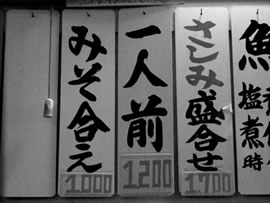 魚
塩
煮
時
さしみ盛合せ
1.700
一人前
1.200
みそ合え
1.000